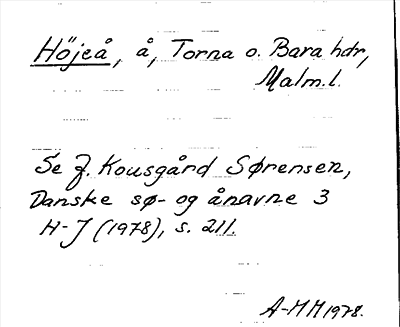 Höjeå, å, Torna o. Bara hdr,
Malm. l.
Se J. Kousgård Sørensen,
Danske sø- og ånavne 3
H-J (1978), s. 211.
A-MM 1978.